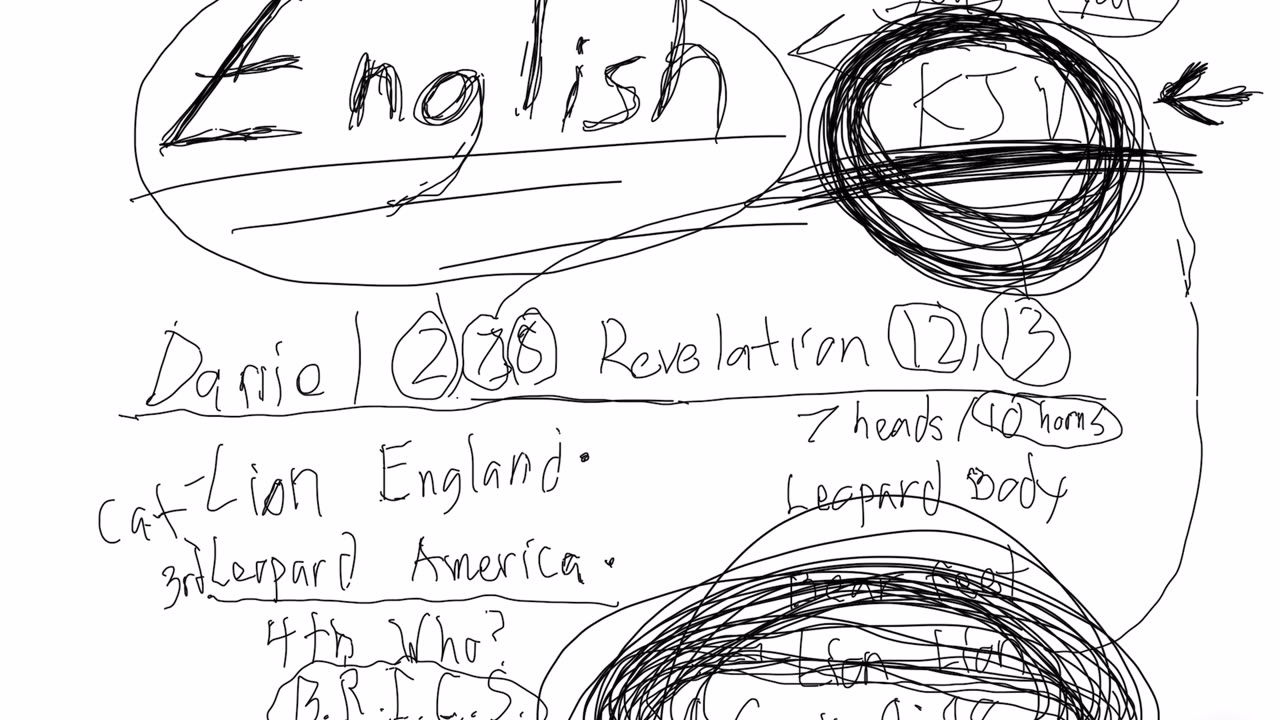 English
KJV
Daniel 2, 7, 8 Revelation 12, 13
7 heads/10 horns
Cat-Lion England.
Leopard Body
3rd Leopard America.
Bear feet
4th Who?
Lion Lion
B.R.I.C.S.